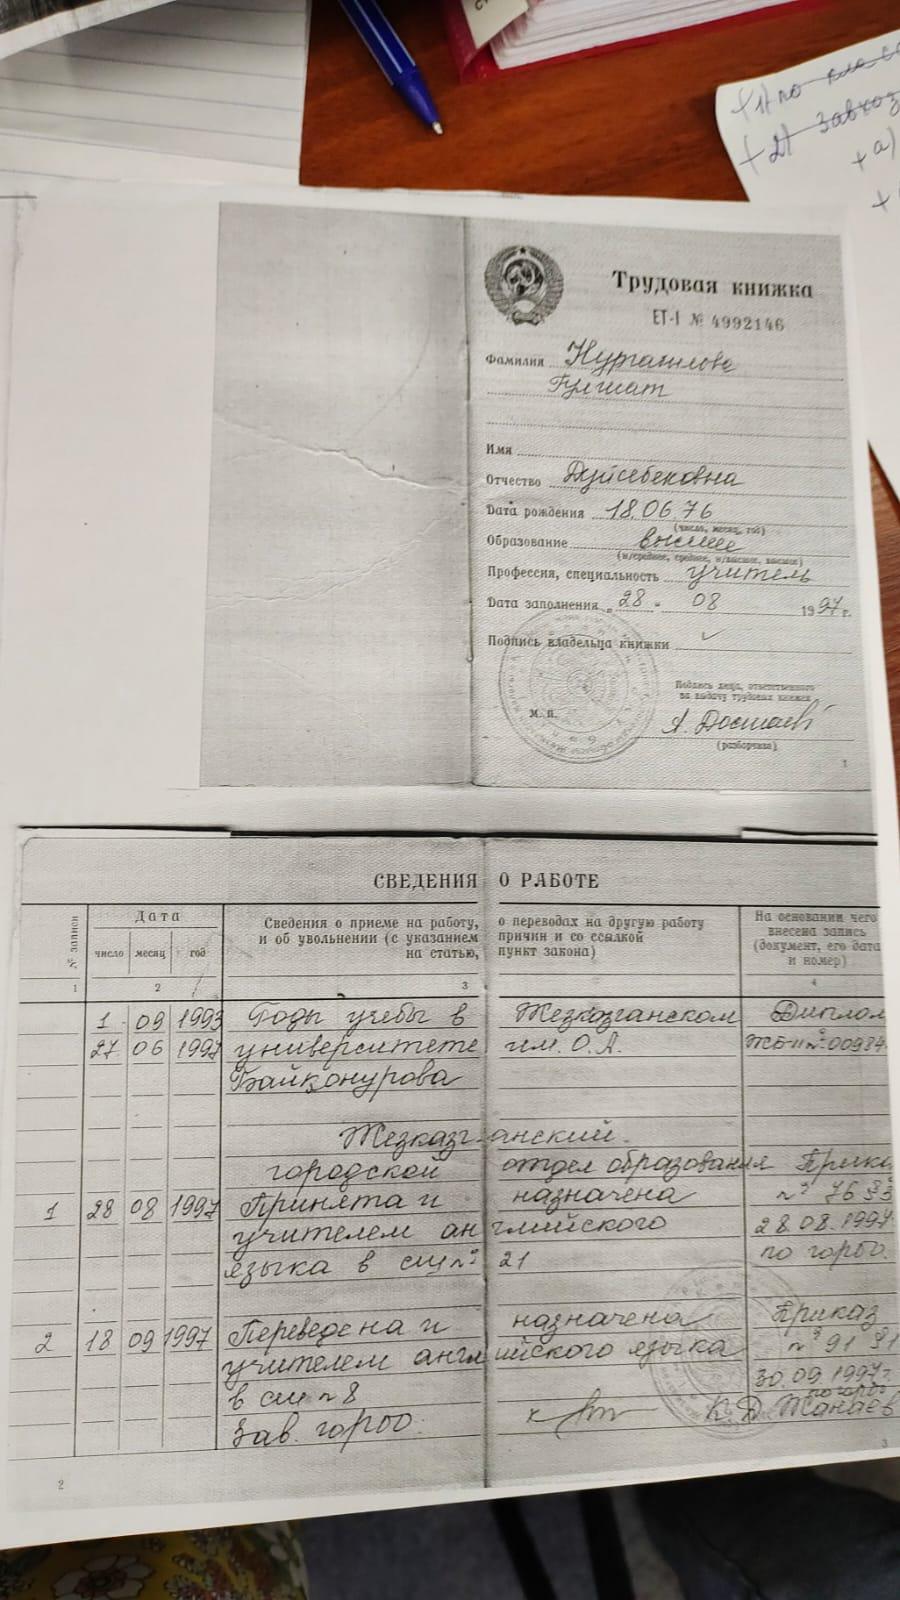 +1) по класс
+2) завхоз
+ а)
+
Трудовая книжка
ЕТ-I № 4992146
Фамилия
Гулшат
Имя
Отчество Дуйсебековна
Дата рождения 18.06.76
(число, месяц, год)
Образование высшее
(н/среднее, среднее, н/высшее, высшее)
Профессия, специальность учитель
Дата заполнения „ 28 " 08 1997 г.
Подпись владельца книжки
Подпись лица, ответственного
за выдачу трудовых книжек
М. П.
А. Достаев
(разборчиво)
1
СВЕДЕНИЯ О РАБОТЕ
№ записи
Дата
число месяц год
Сведения о приеме на работу, о переводах на другую работу
и об увольнении (с указанием причин и со ссылкой
на статью, пункт закона)
На основании чего
внесена запись
(документ, его дата
и номер)
1 2 3 4
1 09 1993 Годы учебы в Жезказганском Диплом
27 06 1997 университете им. О.А. ЖБ-II № 00984
Байконурова
Жезказганский
городской отдел образования Прика
1 28 08 1997 Принята и назначена № 76 §3
учителем английского 28.08.1997
языка в сш № 21 по гороо.
2 18 09 1997 Переведена и назначена Приказ
учителем английского языка № 91 §1
в сш № 8 30.09.1997г.
по гороо
Зав. гороо. К.Д. Жанаев
2 3